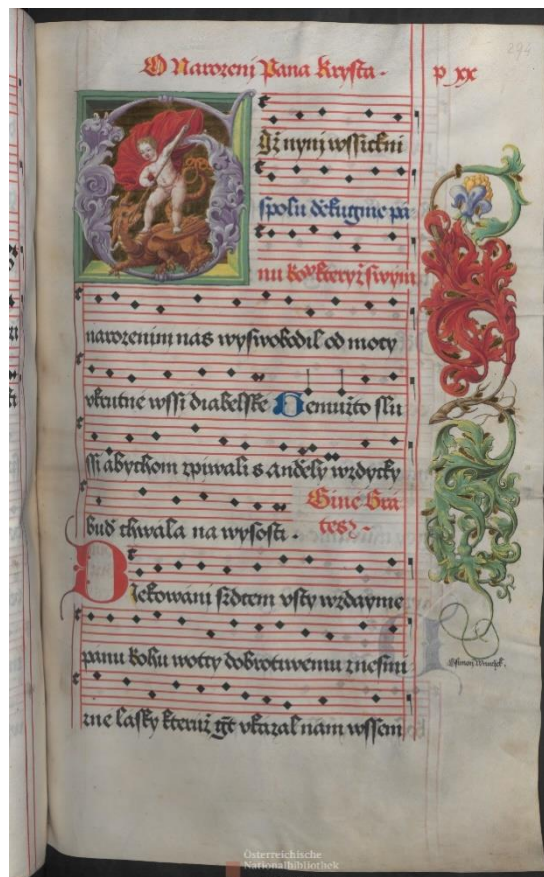 O Narozenj Pana Krysta .
p xx
294
giž nynj wssickni
spolu dekugme pa
nu bohu kterýž swým
narozenim nas wyswobodil od mocy
vkrutne wssi diabelske Gemužto slu
ssi abychom zpiwali s anděly wzdycky
Gine Gra
bud chwala na wysosti .
tes .
Diekowani srdcem vsty wzdayme
panu bohu wotcy dobrotiwemu z nesmi
rne lasky kteruž gt vkazal nam wssem
Österreichische
Nationalbibliothek